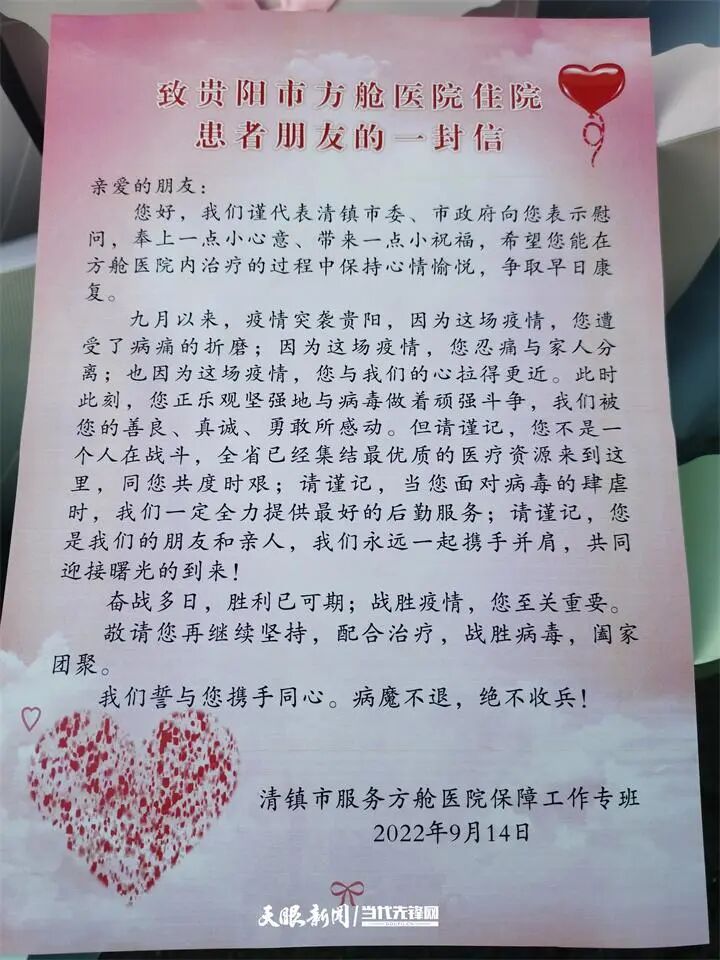 致贵阳市方舱医院住院
患者朋友的一封信
亲爱的朋友：
您好，我们谨代表清镇市委、市政府向您表示慰
问，奉上一点小心意、带来一点小祝福，希望您能在
方舱医院内治疗的过程中保持心情愉悦，争取早日康
复。
九月以来，疫情突袭贵阳，因为这场疫情，您遭
受了病痛的折磨；因为这场疫情，您忍痛与家人分
离；也因为这场疫情，您与我们的心拉得更近。此时
此刻，您正乐观坚强地与病毒做着顽强斗争，我们被
您的善良、真诚、勇敢所感动。但请谨记，您不是一
个人在战斗，全省已经集结最优质的医疗资源来到这
里，同您共度时艰；请谨记，当您面对病毒的肆虐
时，我们一定全力提供最好的后勤服务；请谨记，您
是我们的朋友和亲人，我们永远一起携手并肩，共同
迎接曙光的到来！
奋战多日，胜利已可期；战胜疫情，您至关重要。
敬请您再继续坚持，配合治疗，战胜病毒，阖家
团聚。
我们誓与您携手同心。病魔不退，绝不收兵！
清镇市服务方舱医院保障工作专班
2022年9月14日
天眼新闻/当代先锋网